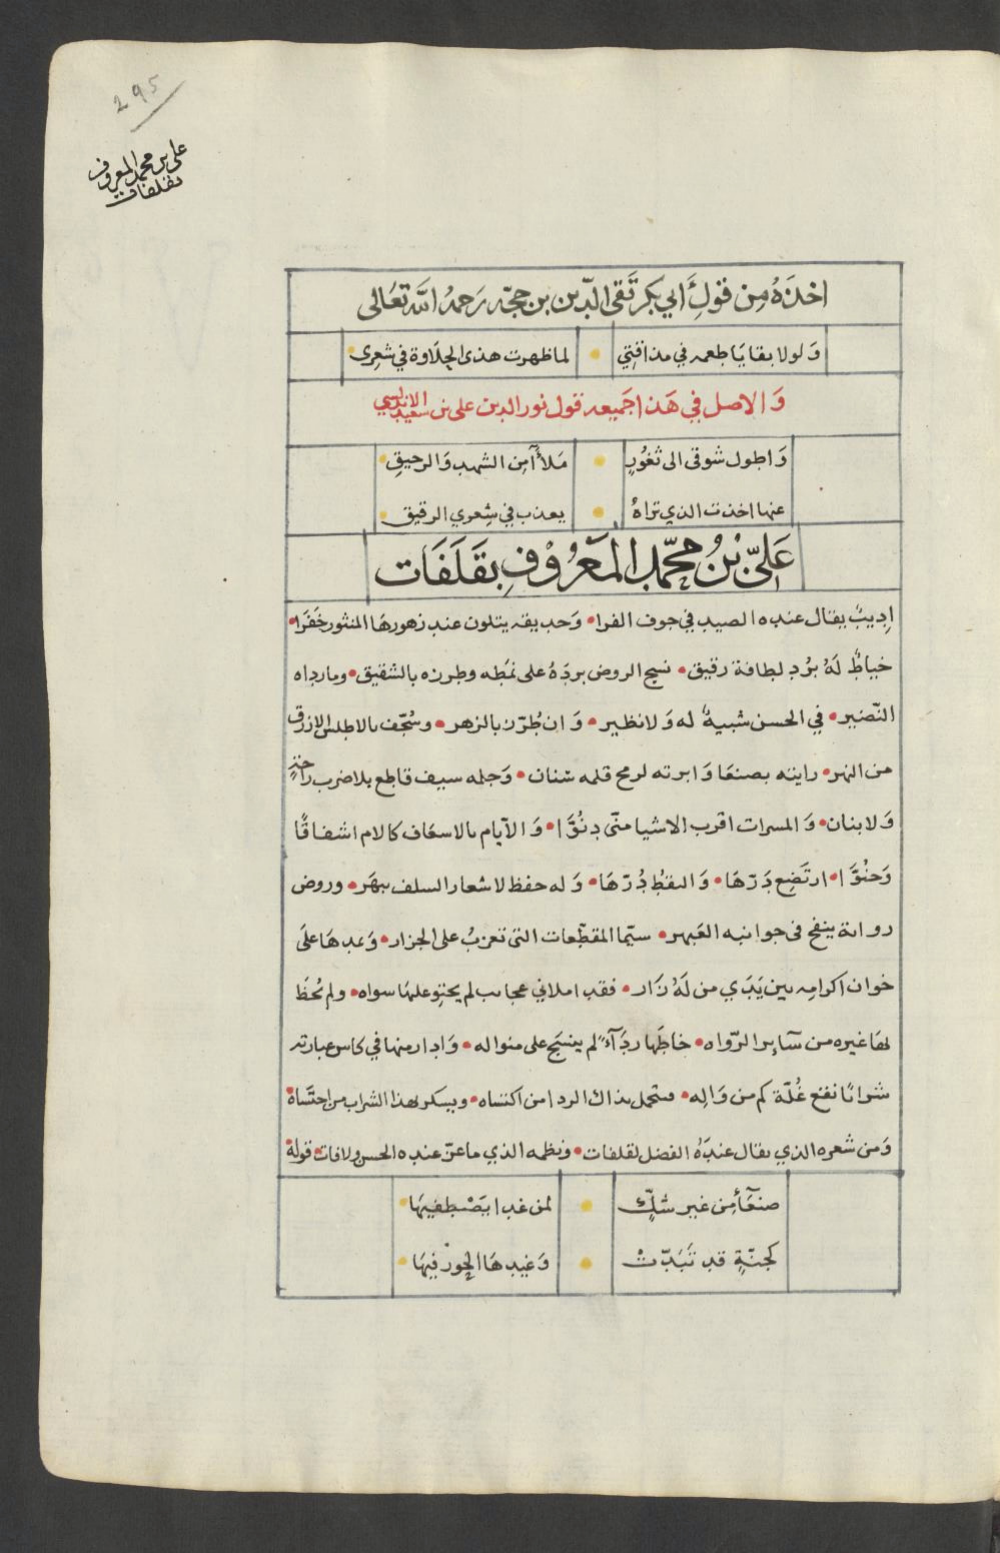 295
علي بن محمد المعروف
بقلفات
اخذهُ مِن قولِ أَبي بكر تَقي الدّين بن حجّه رَحمهُ اللَّه تعَالى
وَلولا بقايَا طعمه في مذاقتِي • لما ظهرت هذى الحِلَاوة في شعِرى
وَالاصل في هَذا جَميعه قول نور الدين على بن سعيد الاندلسي
وَاطول شوقى الى ثغُورٍ • مَلأ آمِن الشهد وَالرحيقِ
عنها اخذت الذي تراهُ • يعذب في شِعري الرقيق
عَليّ بْنُ محمّد المَعرُوْفِ بقَلَفَات
اِديبٌ يقال عنده الصيد في جوف الفرا • وَحديقه يتلون عند زهورهَا المنثور خَفَرا •
خياطٌ لهُ برُد لطافة رقيق • نسج الروض بردَهُ على نمَطِه وطرزه بالشقيق • وما رداه
النّضير • في الحسن شبيهٌ له وَلا نظير • وَان طُرّز بالزهر • وسُجّف بالاطلس الازرق
من النهر • رايته بصنعَا وَابرته لرمح قلمه سنان • وَجلمه سيف قاطع بلا ضرب راحَةٍ
وَلا بنان • وَالمسرات اقرب الاشيا منّى دنُوَّا • وَالآيام بالاسعَاف كالام اشفاقًا
وَحنُوَّا • ارتَضِع دَرّهَا • وَالىقطُ دُرّهَا • وَله حفظ لاشعار السلف يبهَر • وروض
رواية ينفح فى جوانبه العَبهر • سيّما المقطّعات التى تعزبُ على الجزار • وَيمدهَا علَى
خوان اكرامه بين يَدَي من لَهُ زَار • فقد املاني عجايب لم يحتوِ عليهَا سواه • ولم يُحَظ
بهَا غيره من سَآيِر الرّواه • خاطهَا ردَآءً لم ينسَج على منواله • وَادار منها في كاس عبارته
شرابًا نفع غُلّة كم من وَالِه • فتجمل بذاك الردا من اكتساه • ويسكر بهذا الشراب من احتسَاهُ •
وَمن شعره الذي يقال عندَهُ الفضل لقلفات • ونظمه الذي ما عَن عنده الحسن ولافات • قولهُ
صنعَآ مِن غير شكٍّ • لمن غدا يَصْطفيهَا •
كجنّةٍ قد تَبَدّتْ • وَغيدهَا الحِورُ فيهَا •